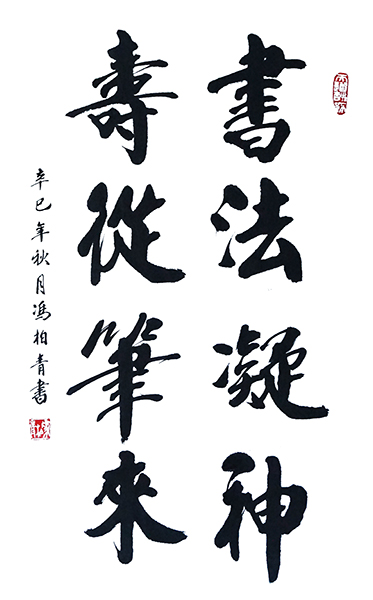 書法凝神
壽從筆來
辛巳年秋月馮柏青書